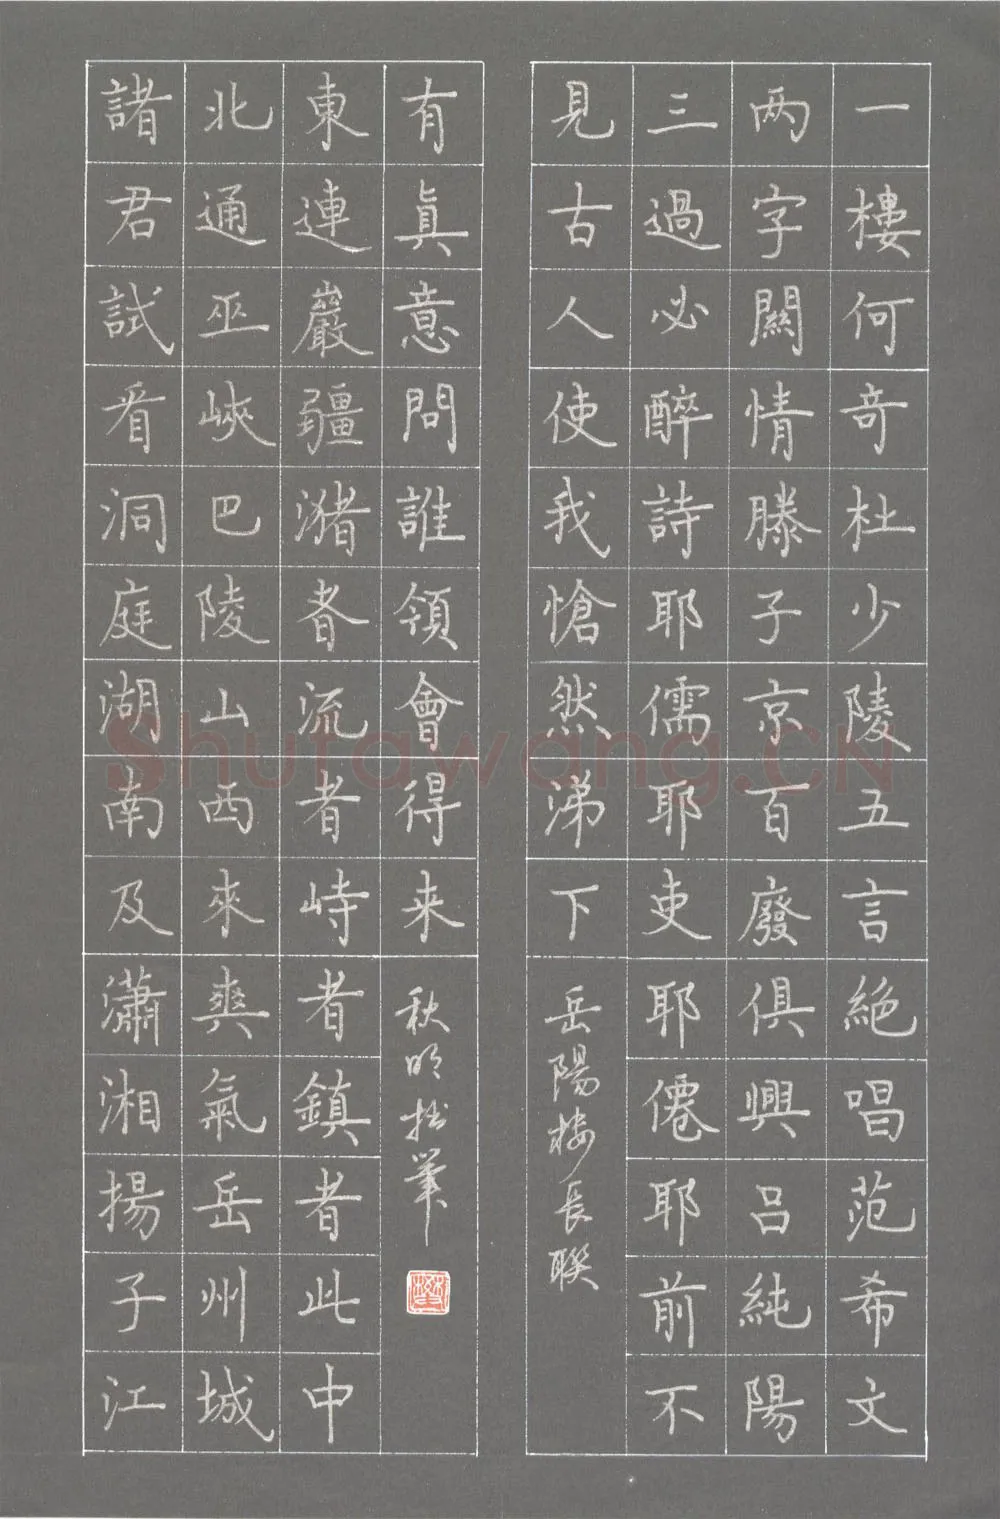 一樓何奇杜少陵五言絕唱范希文
两字關情滕子京百廢俱興呂純陽
三過必醉詩耶儒耶吏耶僊耶前不
見古人使我愴然涕下
岳陽楼長聯
諸君試看洞庭湖南及瀟湘揚子江
北通巫峽巴陵山西來爽氣岳州城
東連巖疆瀦者流者峙者鎮者此中
有眞意問誰領會得来
秋明拙筆
Shufawang.CN